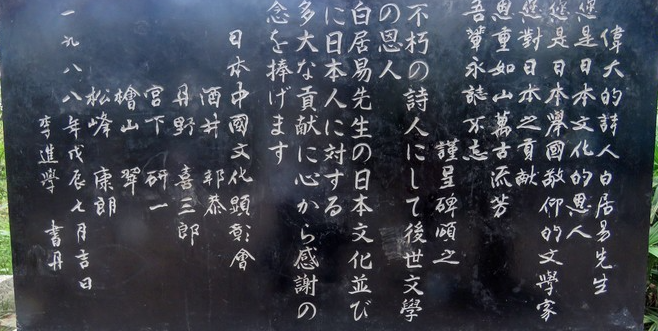 偉大的詩人白居易先生
您是日本文化的恩人
您是日本舉國敬仰的文學家
您對日本之貢献
恩重如山萬古流芳
吾輩永誌不忘
謹呈碑頌之
不朽の詩人にして後世文学
の恩人
白居易先生の日本文化並び
に日本人に対する
多大な貢献に心から感謝の
念を捧げます
日本中國文化顕彰會
酒井 郁恭
丹野 喜三郎
宮下 研一
檜山 翠
松峰 康朗
一九八八年戊辰七月吉日
李進學 書丹